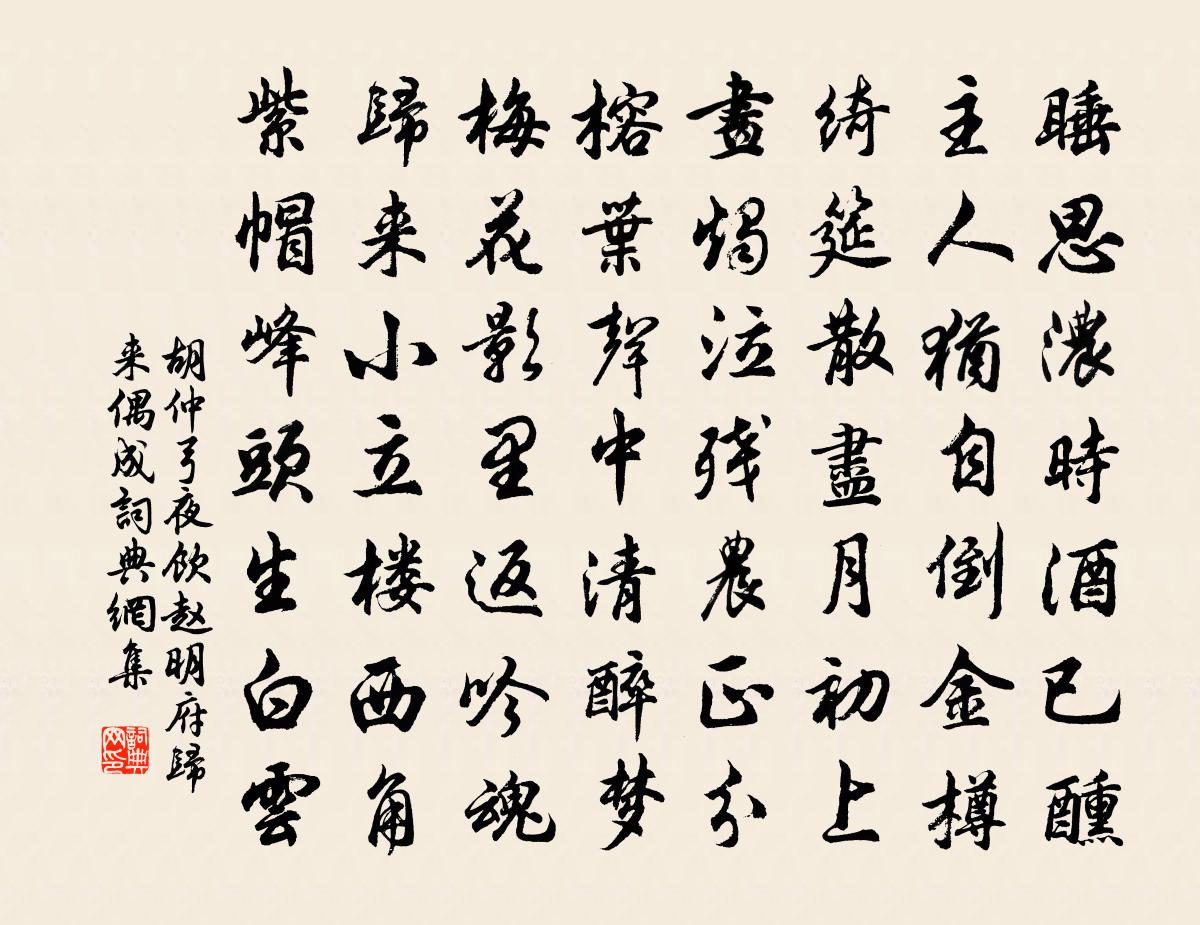 睡思濃時酒已醺
主人猶自倒金樽
綺筵散盡月初上
畫燭泣残農正分
榕葉聲中清醉梦
梅花影里返吟魂
歸来小立楼西角
紫帽峰頭生白雲
胡仲弓夜飲赵明府歸
来偶成詞典網集
詞典网印